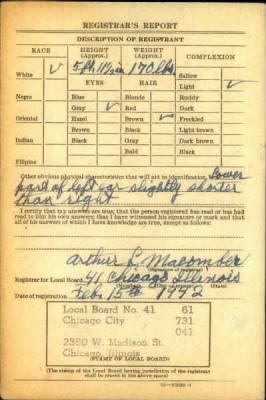 REGISTRAR'S REPORT
DESCRIPTION OF REGISTRANT
RACE HEIGHT (Approx.) WEIGHT (Approx.) COMPLEXION
White ✓ 5 ft. 11½ in 170 lbs Sallow
EYES HAIR Light ✓
Negro Blue Blonde Ruddy
Gray ✓ Red Dark
Oriental Hazel Brown ✓ Freckled
Brown Black Light brown
Indian Black Gray Dark brown
Bald Black
Filipino
Other obvious physical characteristics that will aid in identification Lower
part of left ear slightly shorter
than right
I certify that my answers are true; that the person registered has read or has had
read to him his own answers; that I have witnessed his signature or mark and that
all of his answers of which I have knowledge are true, except as follows:
Arthur L Macomber
(Signature of registrar)
Registrar for Local Board 41 Chicago Illinois
Date of registration Feb. 15th 1942
Local Board No. 41 61
Chicago City 731
041
2350 W. Madison St.
Chicago, Illinois
(STAMP OF LOCAL BOARD)
(The stamp of the Local Board having jurisdiction of the registrant
shall be placed in the above space.)